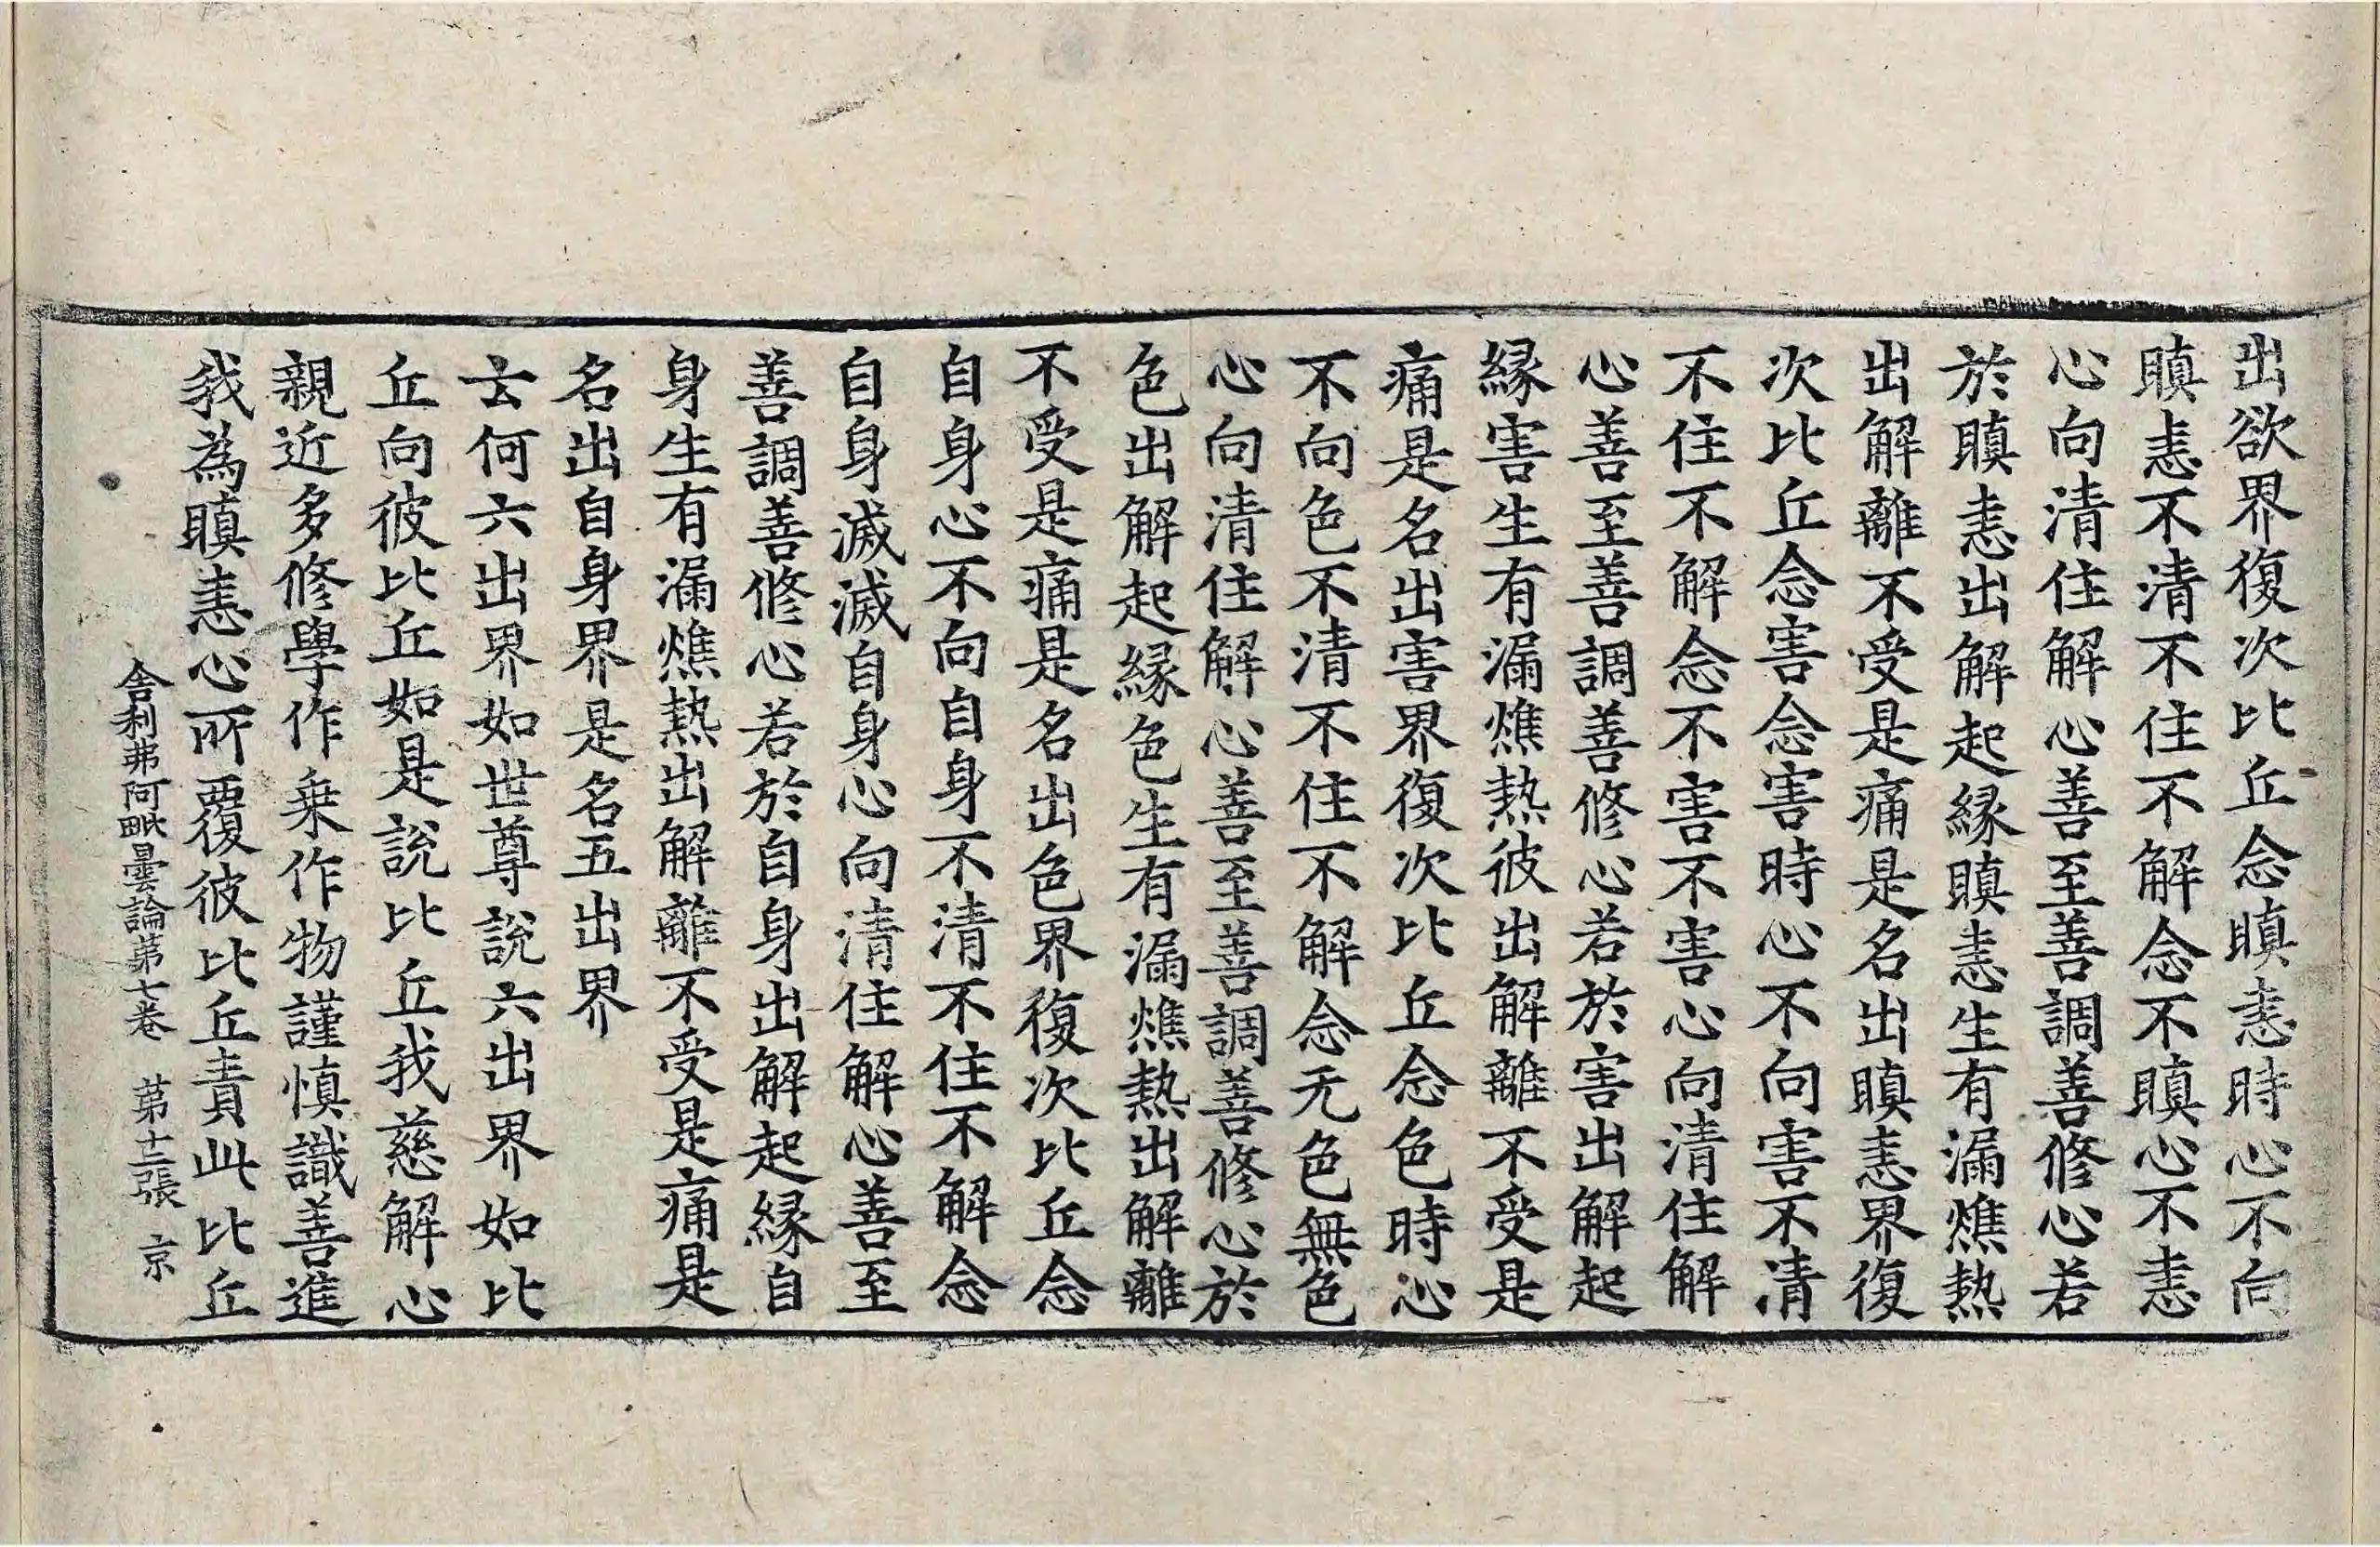 出欲界復次比丘念瞋恚時心不向
瞋恚不清不住不解念不瞋心不恚
心向清住解心善至善調善修心若
於瞋恚出解起緣瞋恚生有漏燋熱
出解離不受是痛是名出瞋恚界復
次比丘念害念害時心不向害不清
不住不解念不害不害心向清住解
心善至善調善修心若於害出解起
緣害生有漏燋熱彼出解離不受是
痛是名出害界復次比丘念色時心
不向色不清不住不解念无色無色
心向清住解心善至善調善修心於
色出解起緣色生有漏燋熱出解離
不受是痛是名出色界復次比丘念
自身心不向自身不清不住不解念
自身滅滅自身心向清住解心善至
善調善修心若於自身出解起緣自
身生有漏燋熱出解離不受是痛是
名出自身界是名五出界
云何六出界如世尊說六出界如比
丘向彼比丘如是說比丘我慈解心
親近多修學作乗作物謹慎識善進
我為瞋恚心所覆彼比丘責此比丘
舍利弗阿毗曇論第七卷 第十二張 京